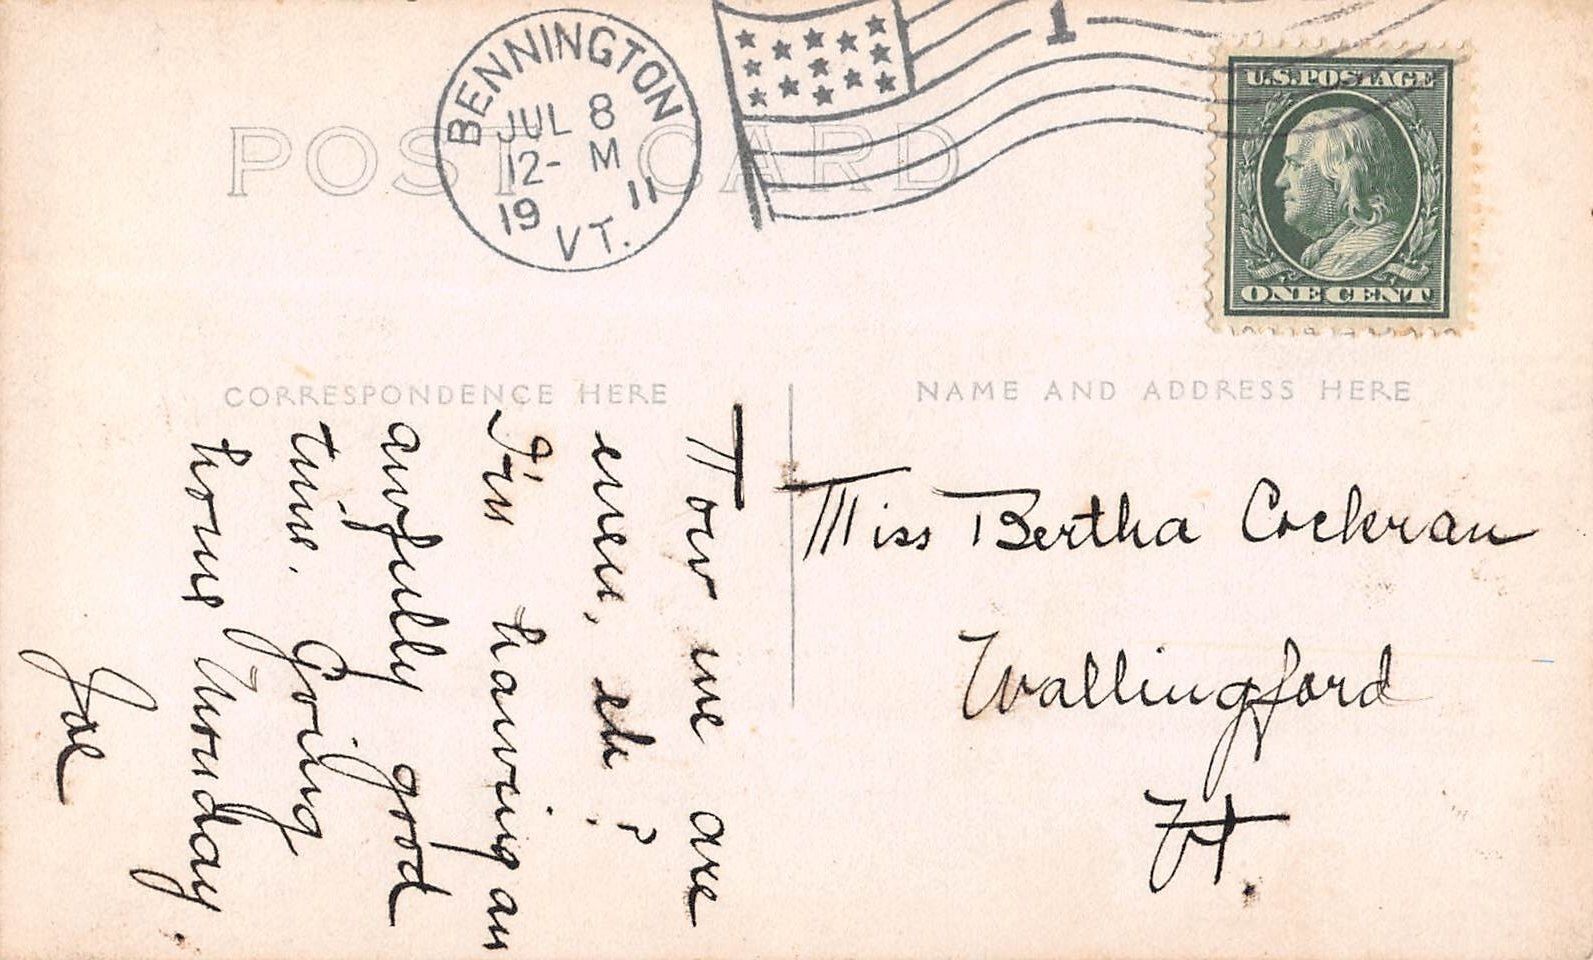 POST CARD
BENNINGTON
JUL 8
12- M
19 11
VT.
1
U.S. POSTAGE
ONE CENT
CORRESPONDENCE HERE
Now we are
even, eh?
I'm having an
awfully good
time. Going
home Monday.
Joe
NAME AND ADDRESS HERE
Miss Bertha Cochran
Wallingford
Vt.